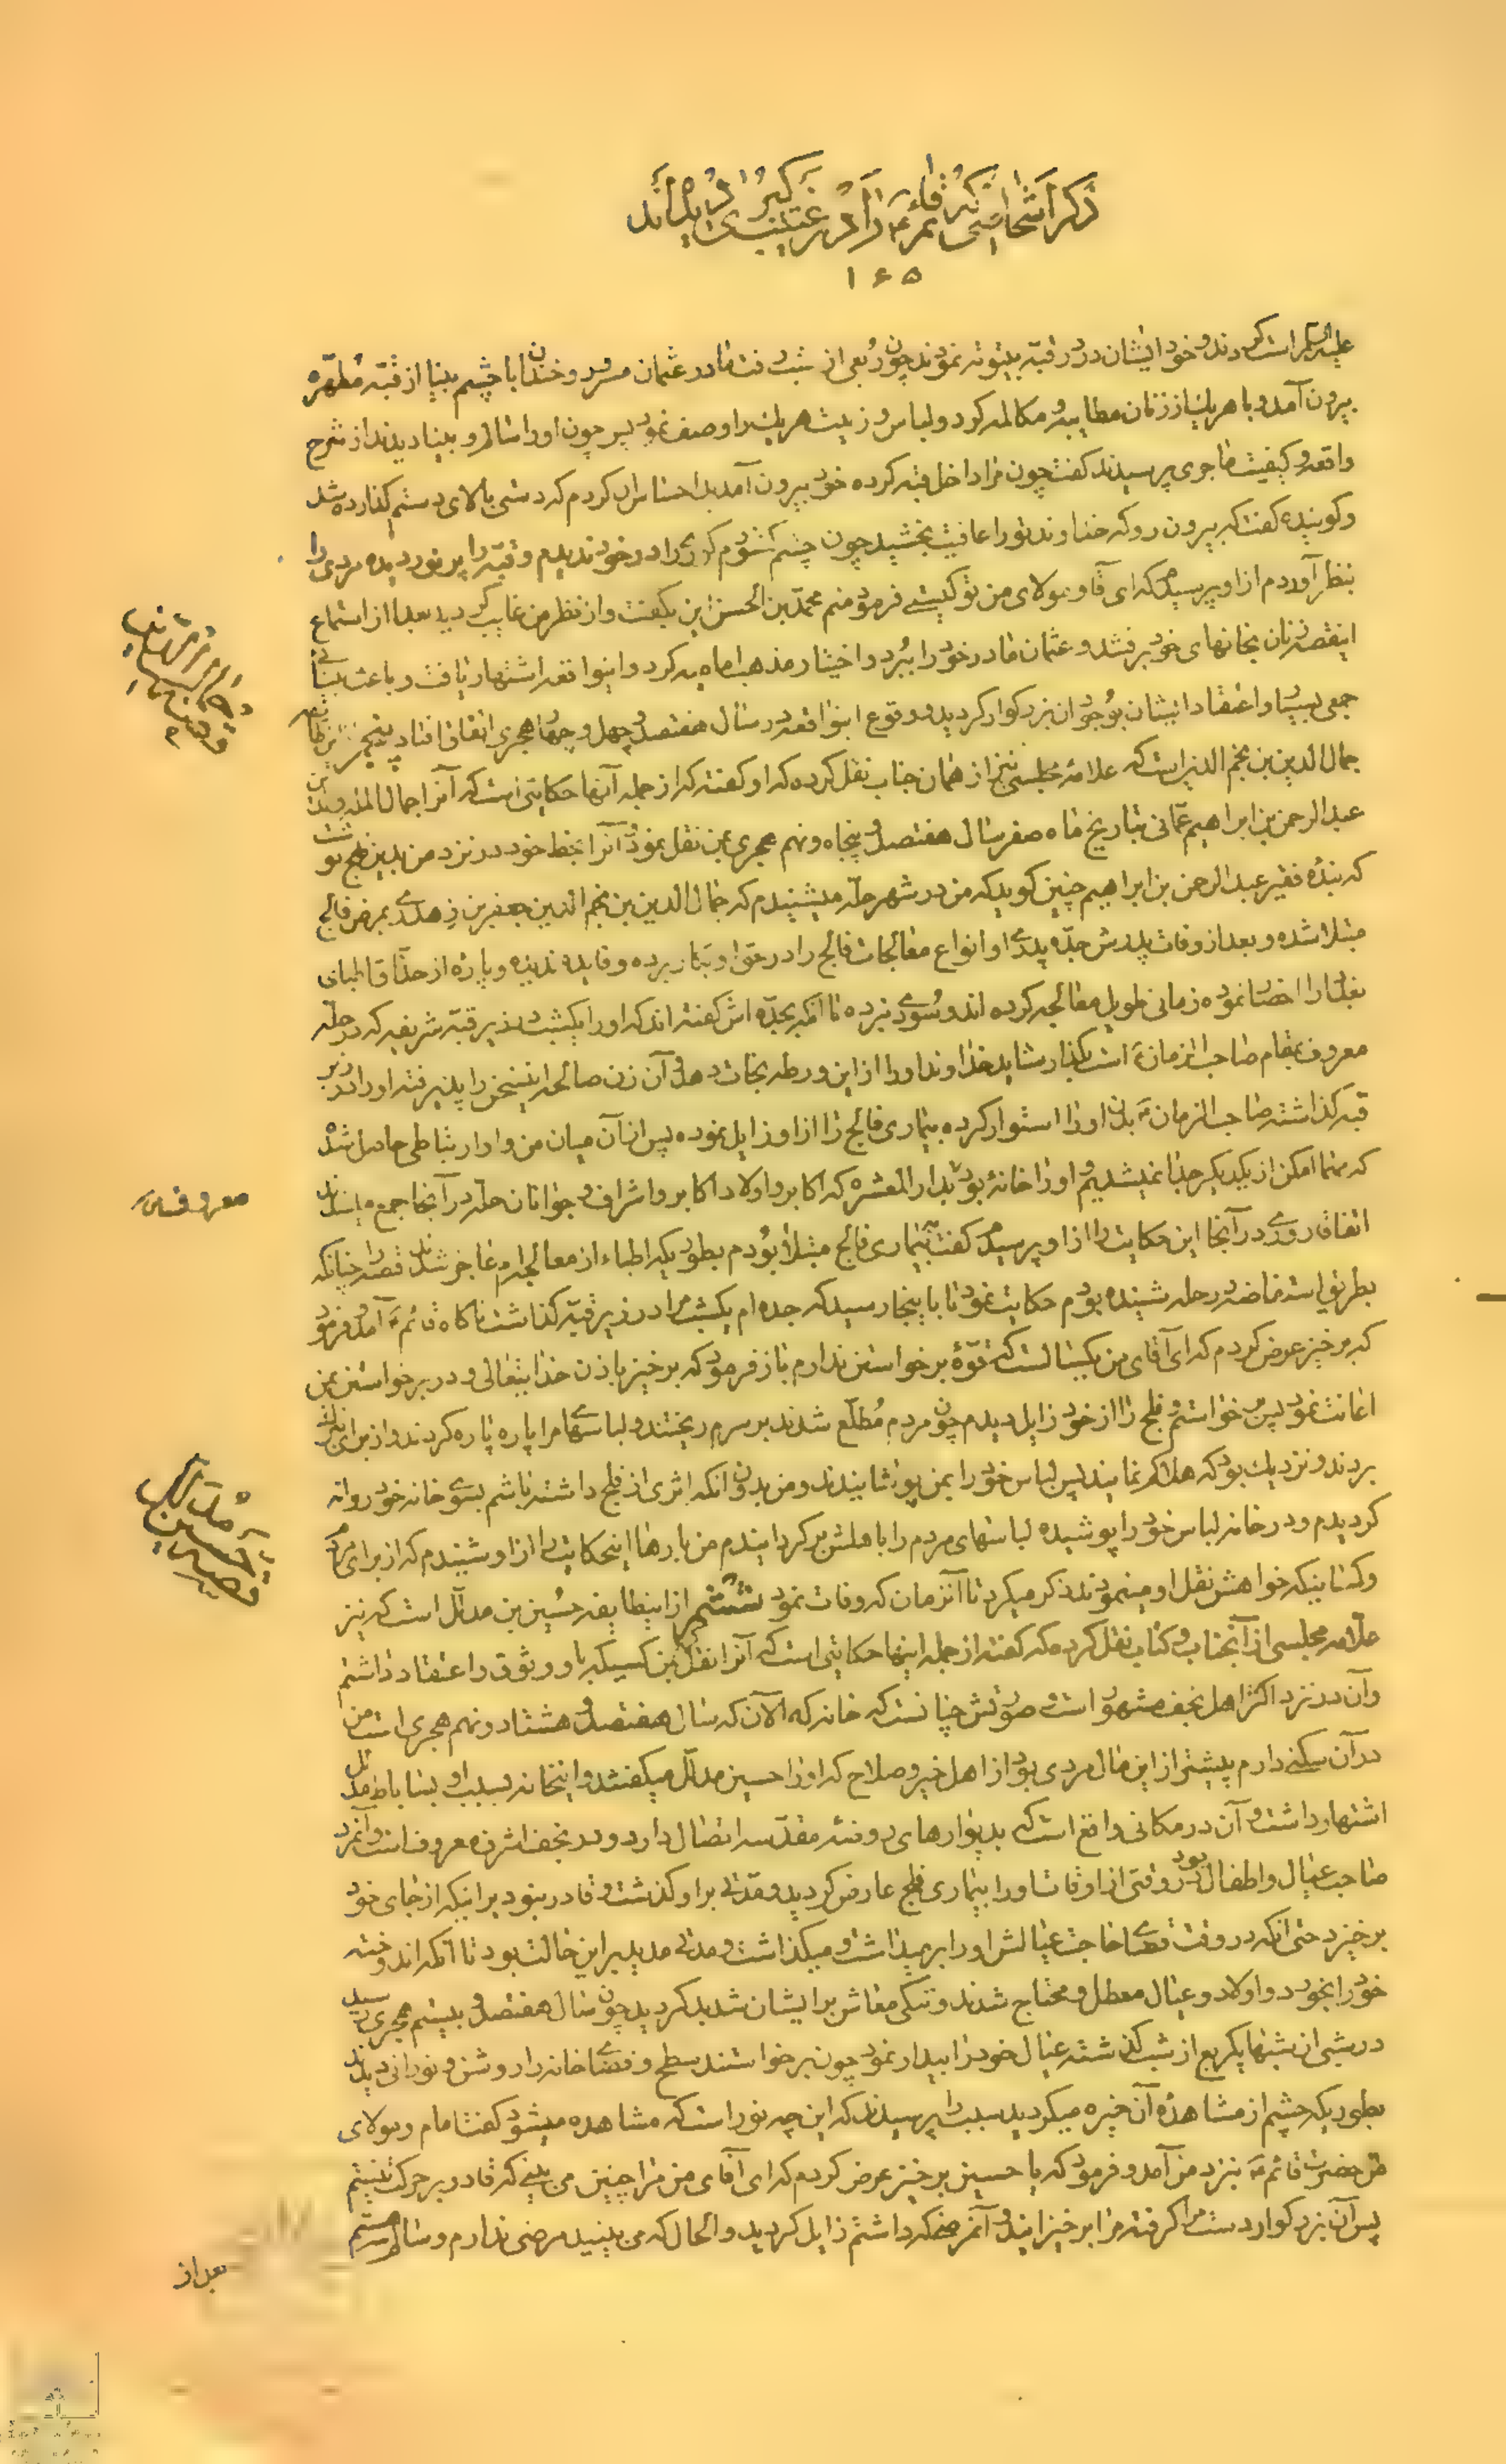 ذکر اشخاصی که قائم ع را در غیبت کبری دیده‌اند
۱۶۵
علیه السلام است کردند و خود ایشان در در قبه بیتوته نمودند چون ربعی از شب رفت مادر عثمان مسرور و خندان با چشم بینا از قبه مطهره
بیرون آمد و با هریک از زنان مطایبه و مکالمه کرد و لباس و زینت هریک را وصف نمود پس چون او را سالم و بینا دیدند از شرح
واقعه و کیفیت ماجری پرسیدند گفت چون مرا داخل قبه کرده خود بیرون آمدید احساس کردم که دستی بالای دستم گذارده شد
و گوینده گفت که بیرون رو که خداوند تو را عافیت بخشید چون چشم گشودم کوری را در خود ندیدم و قبه را پر نور دیده مردی را
بنظر آوردم از او پرسیدم که ای آقا و مولای من تو کیستی فرمود منم محمد بن الحسن این بگفت و از نظر من غایب گردید بعد از استماع
اینقصه زنان بخانهای خود برفتند و عثمان مادر خود را ببرد و اختیار مذهب امامیه کرد و اینواقعه اشتهار یافت و باعث
جمعی بسیار و اعتقاد ایشان بوجود آن بزرکوار کردید و وقوع اینواقعه در سال هفتصد و چهل و چهار هجری اتفاق افتاد پنجم
جمال الدین بن نجم الدین است که علامه مجلسی نیز از همان جناب نقل کرده که او گفته که از جمله آنها حکایتی است که آنرا جمال المله والدین
عبد الرحمن بن ابراهیم عمانی بتاریخ ماه صفر سال هفتصد و پنجاه و نهم هجری بمن نقل نمود و آنرا بخط خود در نزد من بدین نهج نوشت
که بنده فقیر عبد الرحمن بن ابراهیم چنین گوید که من در شهر حله میشنیدم که جمال الدین بن نجم الدین جعفر بن زهدری بمرض فالج
مبتلا شده و بعد از وفات پدرش جده پدری او انواع معالجات فالج را در حق او بکار برده و فایده ندیده و پاره از حذاق اطبای
بغداد را احضار نموده زمانی طویل معالجه کرده اند و سودی نبرده تا آنکه بجده اش گفته اند که او را یکشب در زیر قبه شریفه که در حله
معروف بمقام صاحب الزمان ع است بگذار شاید خداوند او را از این ورطه نجات دهد و آن زن صالحه اینسخن را پذیرفته او را در زیر
قبه گذاشته صاحب الزمان ع بدن او را استوار کرده بیماری فالج را از او زایل نموده پس از آن میان من و او ارتباطی حاصل شد
که مهما امکن از یکدیگر جدا نمیشدیم و او را خانهٔ بود بدار المعشره که اکابر و اولاد اکابر و اشراف و جوانان حله در آنجا جمع میشدند
اتفاقا روزی در آنجا این حکایت را از او پرسیدم گفت به بیماری فالج مبتلا بودم بطوریکه اطباء از معالجه ام عاجز شدند قصه را چنانکه
بطریق استفاضه در حله شنیده بودم حکایت نمود تا باینجا رسید که جده ام یکشب مرا در زیر قبه گذاشت ناگاه قائم ع آمد و فرمود
که برخیز عرض کردم که ای آقای من یکسالست که قوهٔ برخواستن ندارم باز فرمود که برخیز باذن خدایتعالی و در برخواستن بمن
اعانت نمود پس برخواستم و فلج را از خود زایل دیدم چون مردم مطلع شدند بر سرم ریختند و لباسهای مرا پاره پاره کردند و از برای تبرک
بردند و نزدیک بود که هلاکم نمایند پس لباس خود را بمن پوشانیدند و من بدون آنکه اثری از فلج داشته باشم بسوی خانه خود روانه
گردیدم و در خانه لباس خود را پوشیده لباسهای مردم را باهلش برگردانیدم من بارها اینحکایت را از او شنیدم که از برای مردم
و کسانیکه خواهش نقل او مینمودند ذکر میکرد تا آنزمان که وفات نمود ششم از اینطایفه حسین بن مدلل است که نیز
علامه مجلسی از آنجناب و کتاب نقل کرده که گفته از جمله اینها حکایتی است که آنرا نقل کرد بمن کسیکه باو وثوق و اعتقاد داشتم
و آن در نزد اکثر اهل نجف مشهور است و صورتش چنانست که خانه که الآن که سال هفتصد و هشتاد و نهم هجری است من
در آن سکنی دارم پیشتر از این مال مردی بود از اهل خیر و صلاح که او را حسین مدلل میگفتند و اینخانه بسبب او بساباط مدلل
اشتهار داشت و آن در مکانی واقع است که بدیوارهای روضه مقدسه اتصال دارد و در نجف اشرف معروف است و آنمرد
صاحب عیال و اطفال بود در وقتی از اوقات او را بیماری فلج عارض گردید و مدتی بر او گذشت و قادر نبود بر اینکه از جای خود
برخیزد حتی آنکه در وقت قضای حاجت عیالش او را برمیداشت و میگذاشت و مدتی مدید بر این حالت بود تا آنکه اندوخته
خود را بخورد و اولاد و عیال معطل و محتاج شدند و تنگی معاش بر ایشان شدید گردید چون سال هفتصد و بیستم هجری رسید
در شبی از شبها یکربع از شب گذشته عیال خود را بیدار نمود چون برخواستند سطح و فضای خانه را روشن و نورانی دیدند
بطوریکه چشم از مشاهدهٔ آن خیره میگردید سبب را پرسیدند که این چه نور است که مشاهده میشود گفت امام و مولای
من حضرت قائم ع بنزد من آمد و فرمود که یا حسین برخیز عرض کردم که ای آقای من مرا چنین می بینی که قادر بر حرکت نیستم
پس آن بزرکوار دست مرا گرفته مرا برخیزانید و آنمرضیکه داشتم زایل گردید و الحال که می بینید مرضی ندارم و سالم هستم
قصه حسین مدلل
بعد از